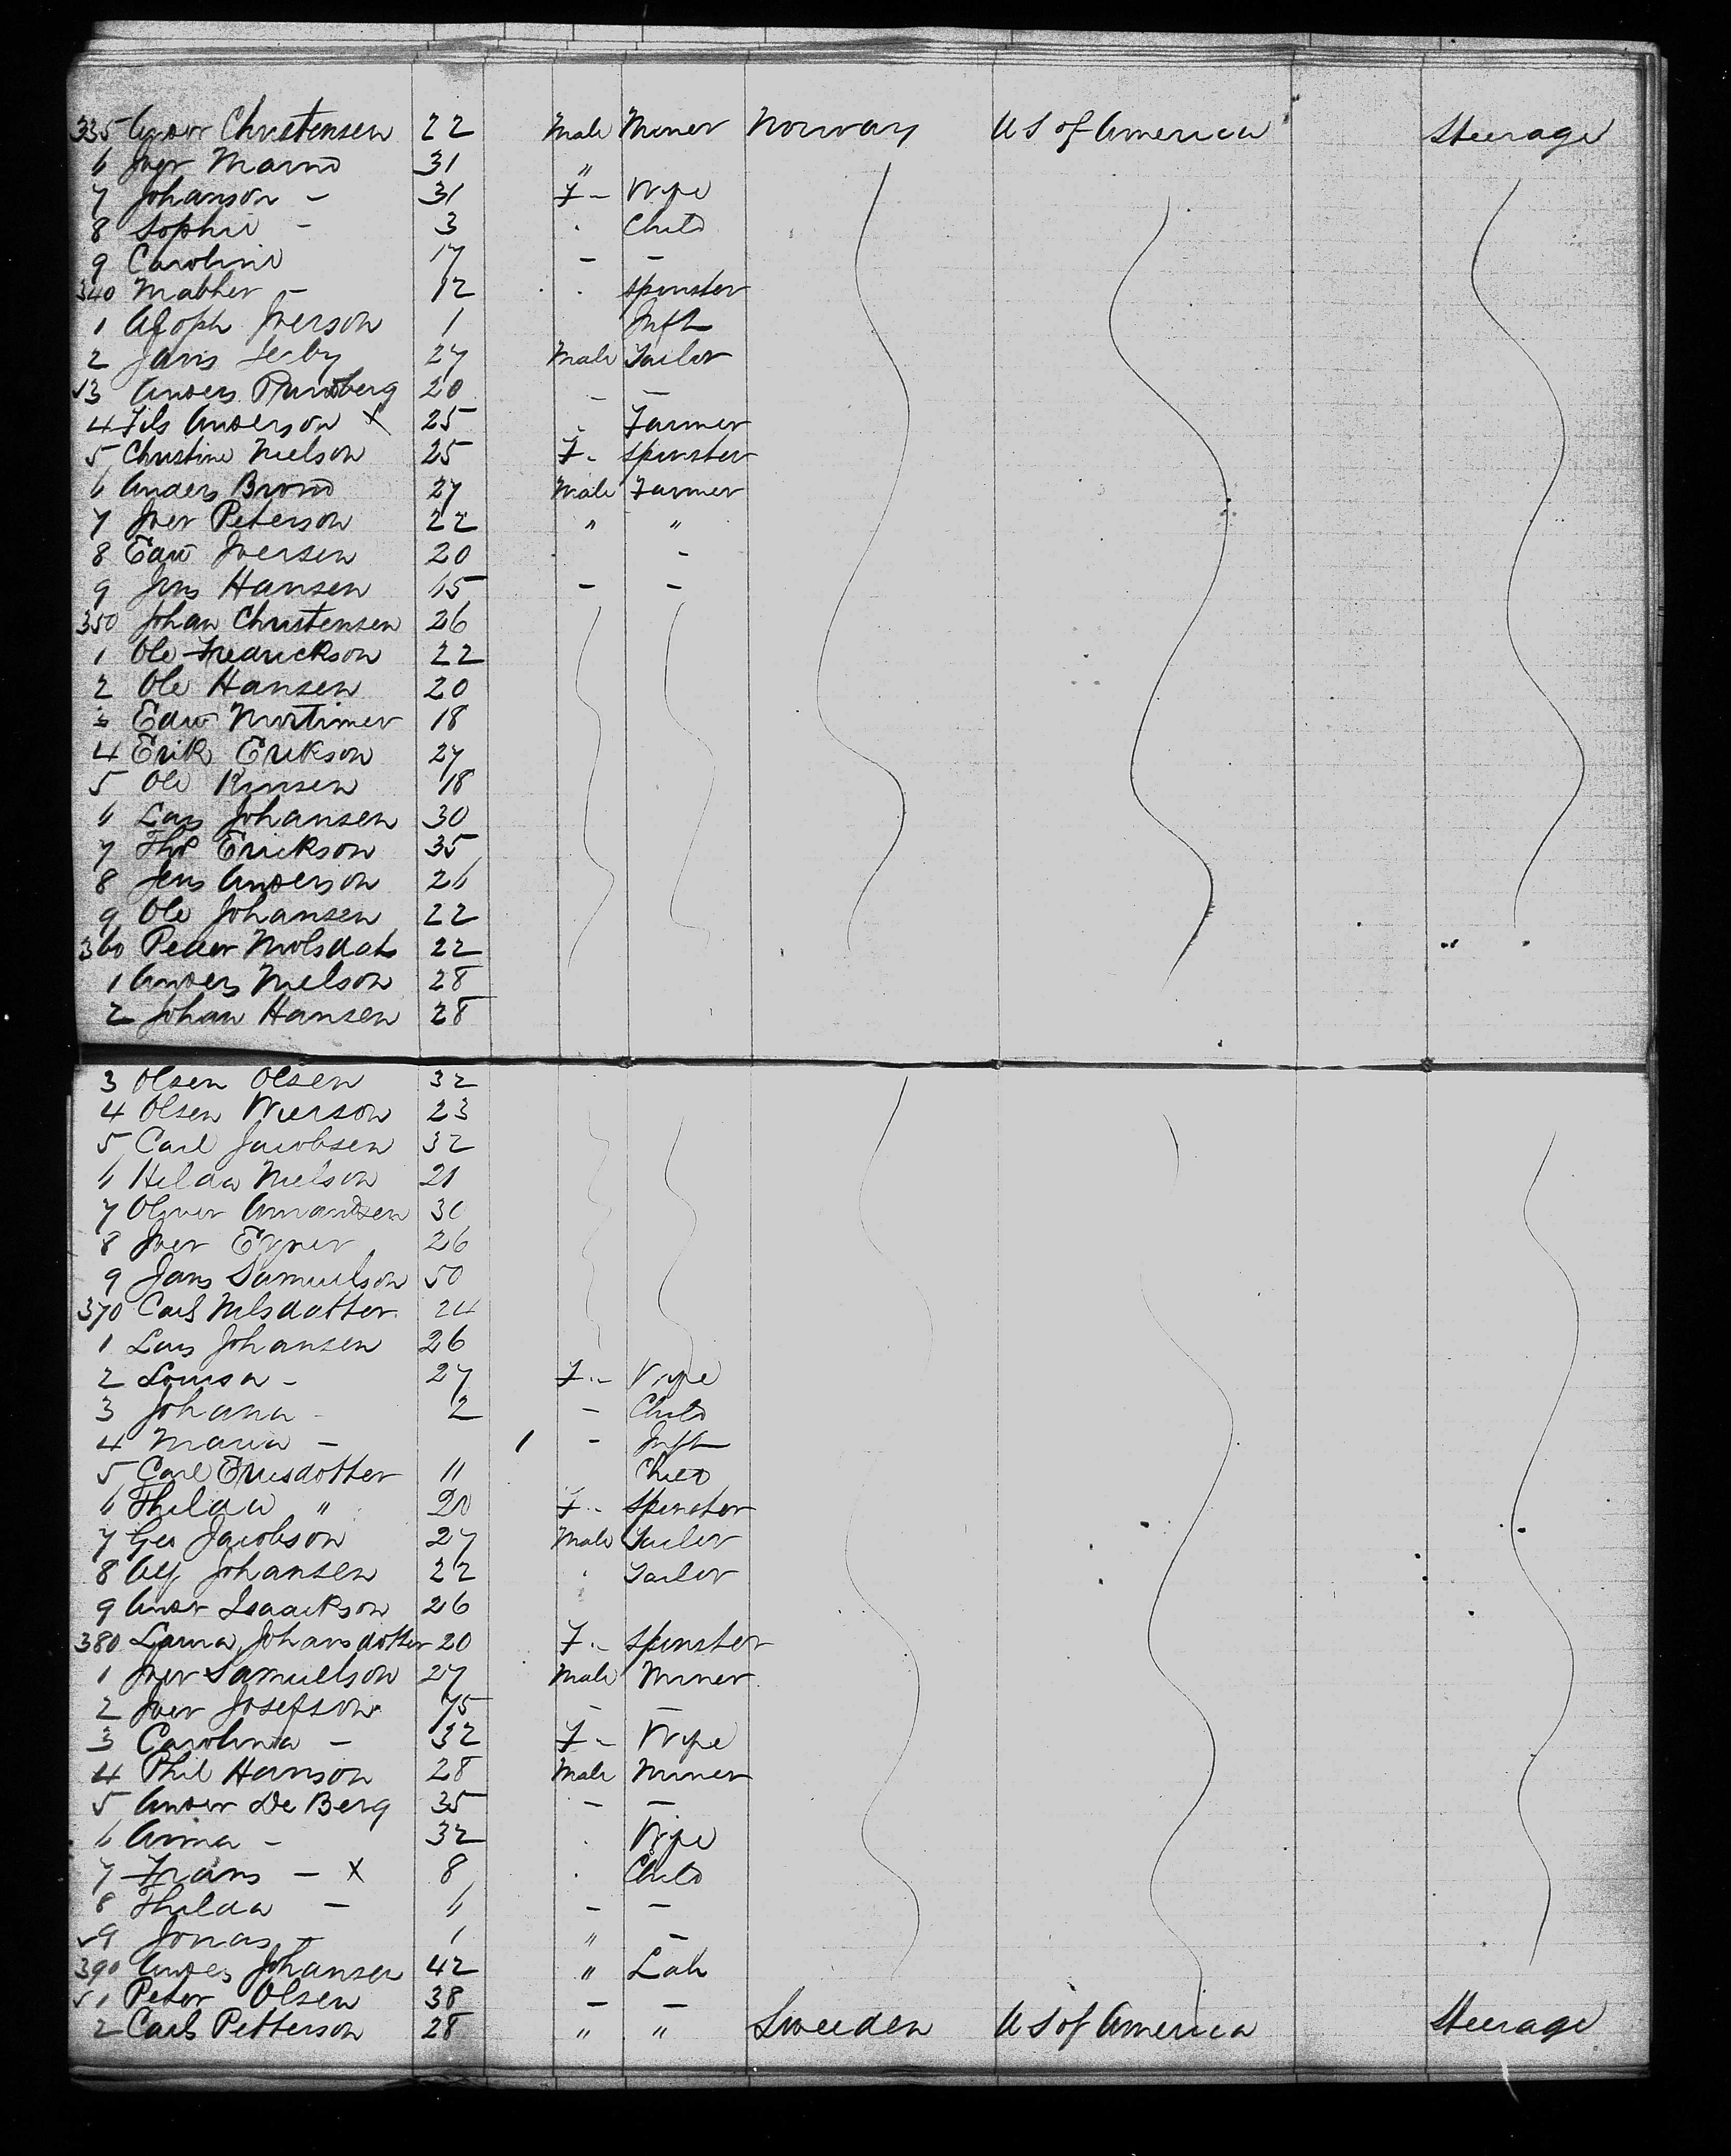 335 Ander Christensen 22 Male Miner Norway US of America Steerage
6 Iver Marno 31 "
7 Johanson - 31 F - Wife
8 Sophie - 3 . Child
9 Caroline 17 - -
340 Mather - 12 . Spinster
1 Iverson 1 Inft
2 Jans Seby 27 Male Tailor
3 Anders Rundberg 20 - -
4 Fils Anderson X 25 . Farmer
5 Christine Nielson 25 F - Spinster
6 Anders Brono 27 Male Farmer
7 Iver Peterson 22 " "
8 Edw Iversen 20 -
9 Jens Hansen 65 - -
350 Johan Christensen 26
1 Ole Fredrickson 22
2 Ole Hansen 20
3 Edw Mortimer 18
4 Erik Erikson 27
5 Ole Rinsen 18
6 Lars Johansen 30
7 Tho Erickson 35
8 Jens Anderson 26
9 Ole Johansen 22
360 Peder 22
1 Anders Nielson 28
2 Johan Hansen 28
3 Olsen Olsen 32
4 Olsen 23
5 Carl Jacobsen 32
6 Hilda Nielson 21
7 Oliver Amandsen 30
8 Iver 26
9 Jans Samuelson 50
370 Carl Nilsdotter 24
1 Lars Johansen 26
2 Louisa - 27 F - Wife
3 Johana - 2 - Child
4 Maria - 1 - Inft
5 Carl Ericsdotter 11 Child
6 Thilda " 20 F - Spinster
7 Geo Jacobson 27 Male Tailor
8 Alf Johansen 22 . Tailor
9 Ander Isaackson 26
380 Laura Johansdotter 20 F - Spinster
1 Iver Samuelson 27 Male Miner
2 Iver Josefson 75 - -
3 Carolina - 32 F - Wife
4 Phil Hanson 28 Male Miner
5 Ander De Berg 35 - -
6 Anna - 32 . Wife
7 Frans - X 8 . Child
8 Thilda - 6 - -
9 Jonas - 1 " -
390 Anders Johansen 42 " Lab
1 Peter Olsen 38 - -
2 Carl Petterson 28 " " Sweeden US of America Steerage